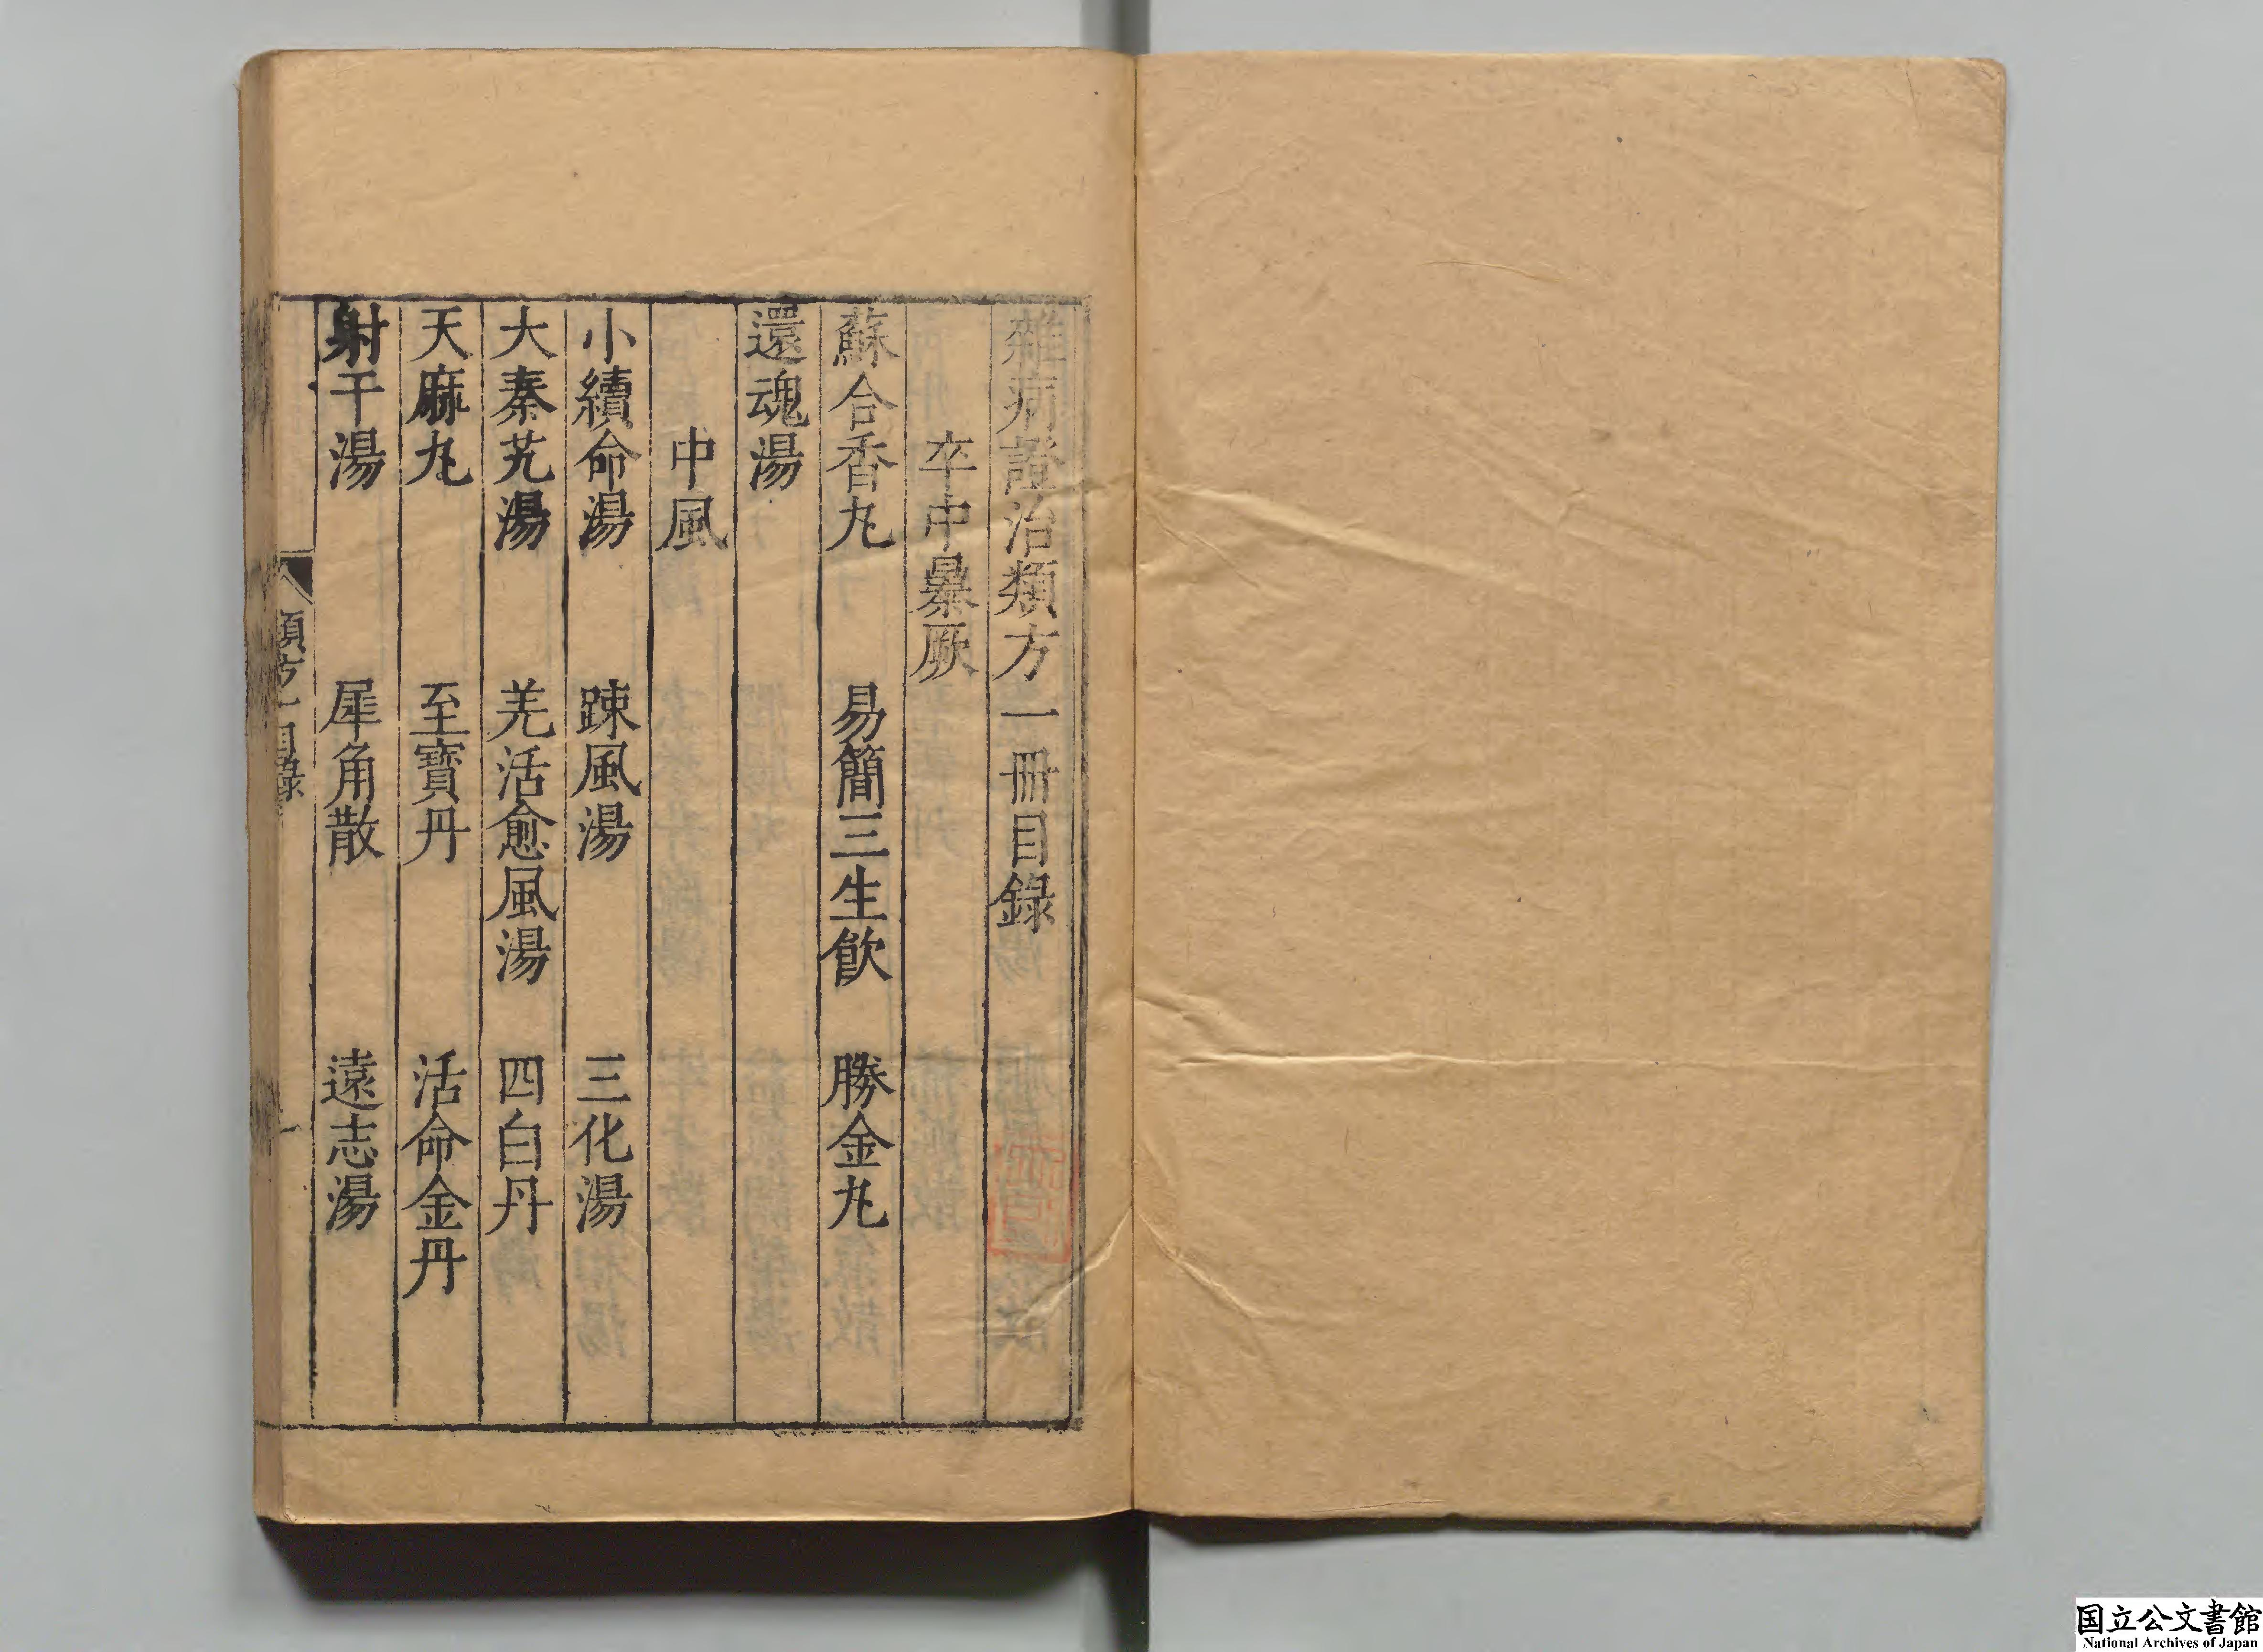 雜病證治類方一冊目錄
卒中暴厥
蘇合香丸　易簡三生飮　勝金丸
還魂湯
中風
小續命湯　踈風湯　三化湯
大秦艽湯　羌活愈風湯　四白丹
天麻丸　至寶丹　活命金丹
射干湯　犀角散　遠志湯
類方一目錄　一
国立公文書館
National Archives of Japan